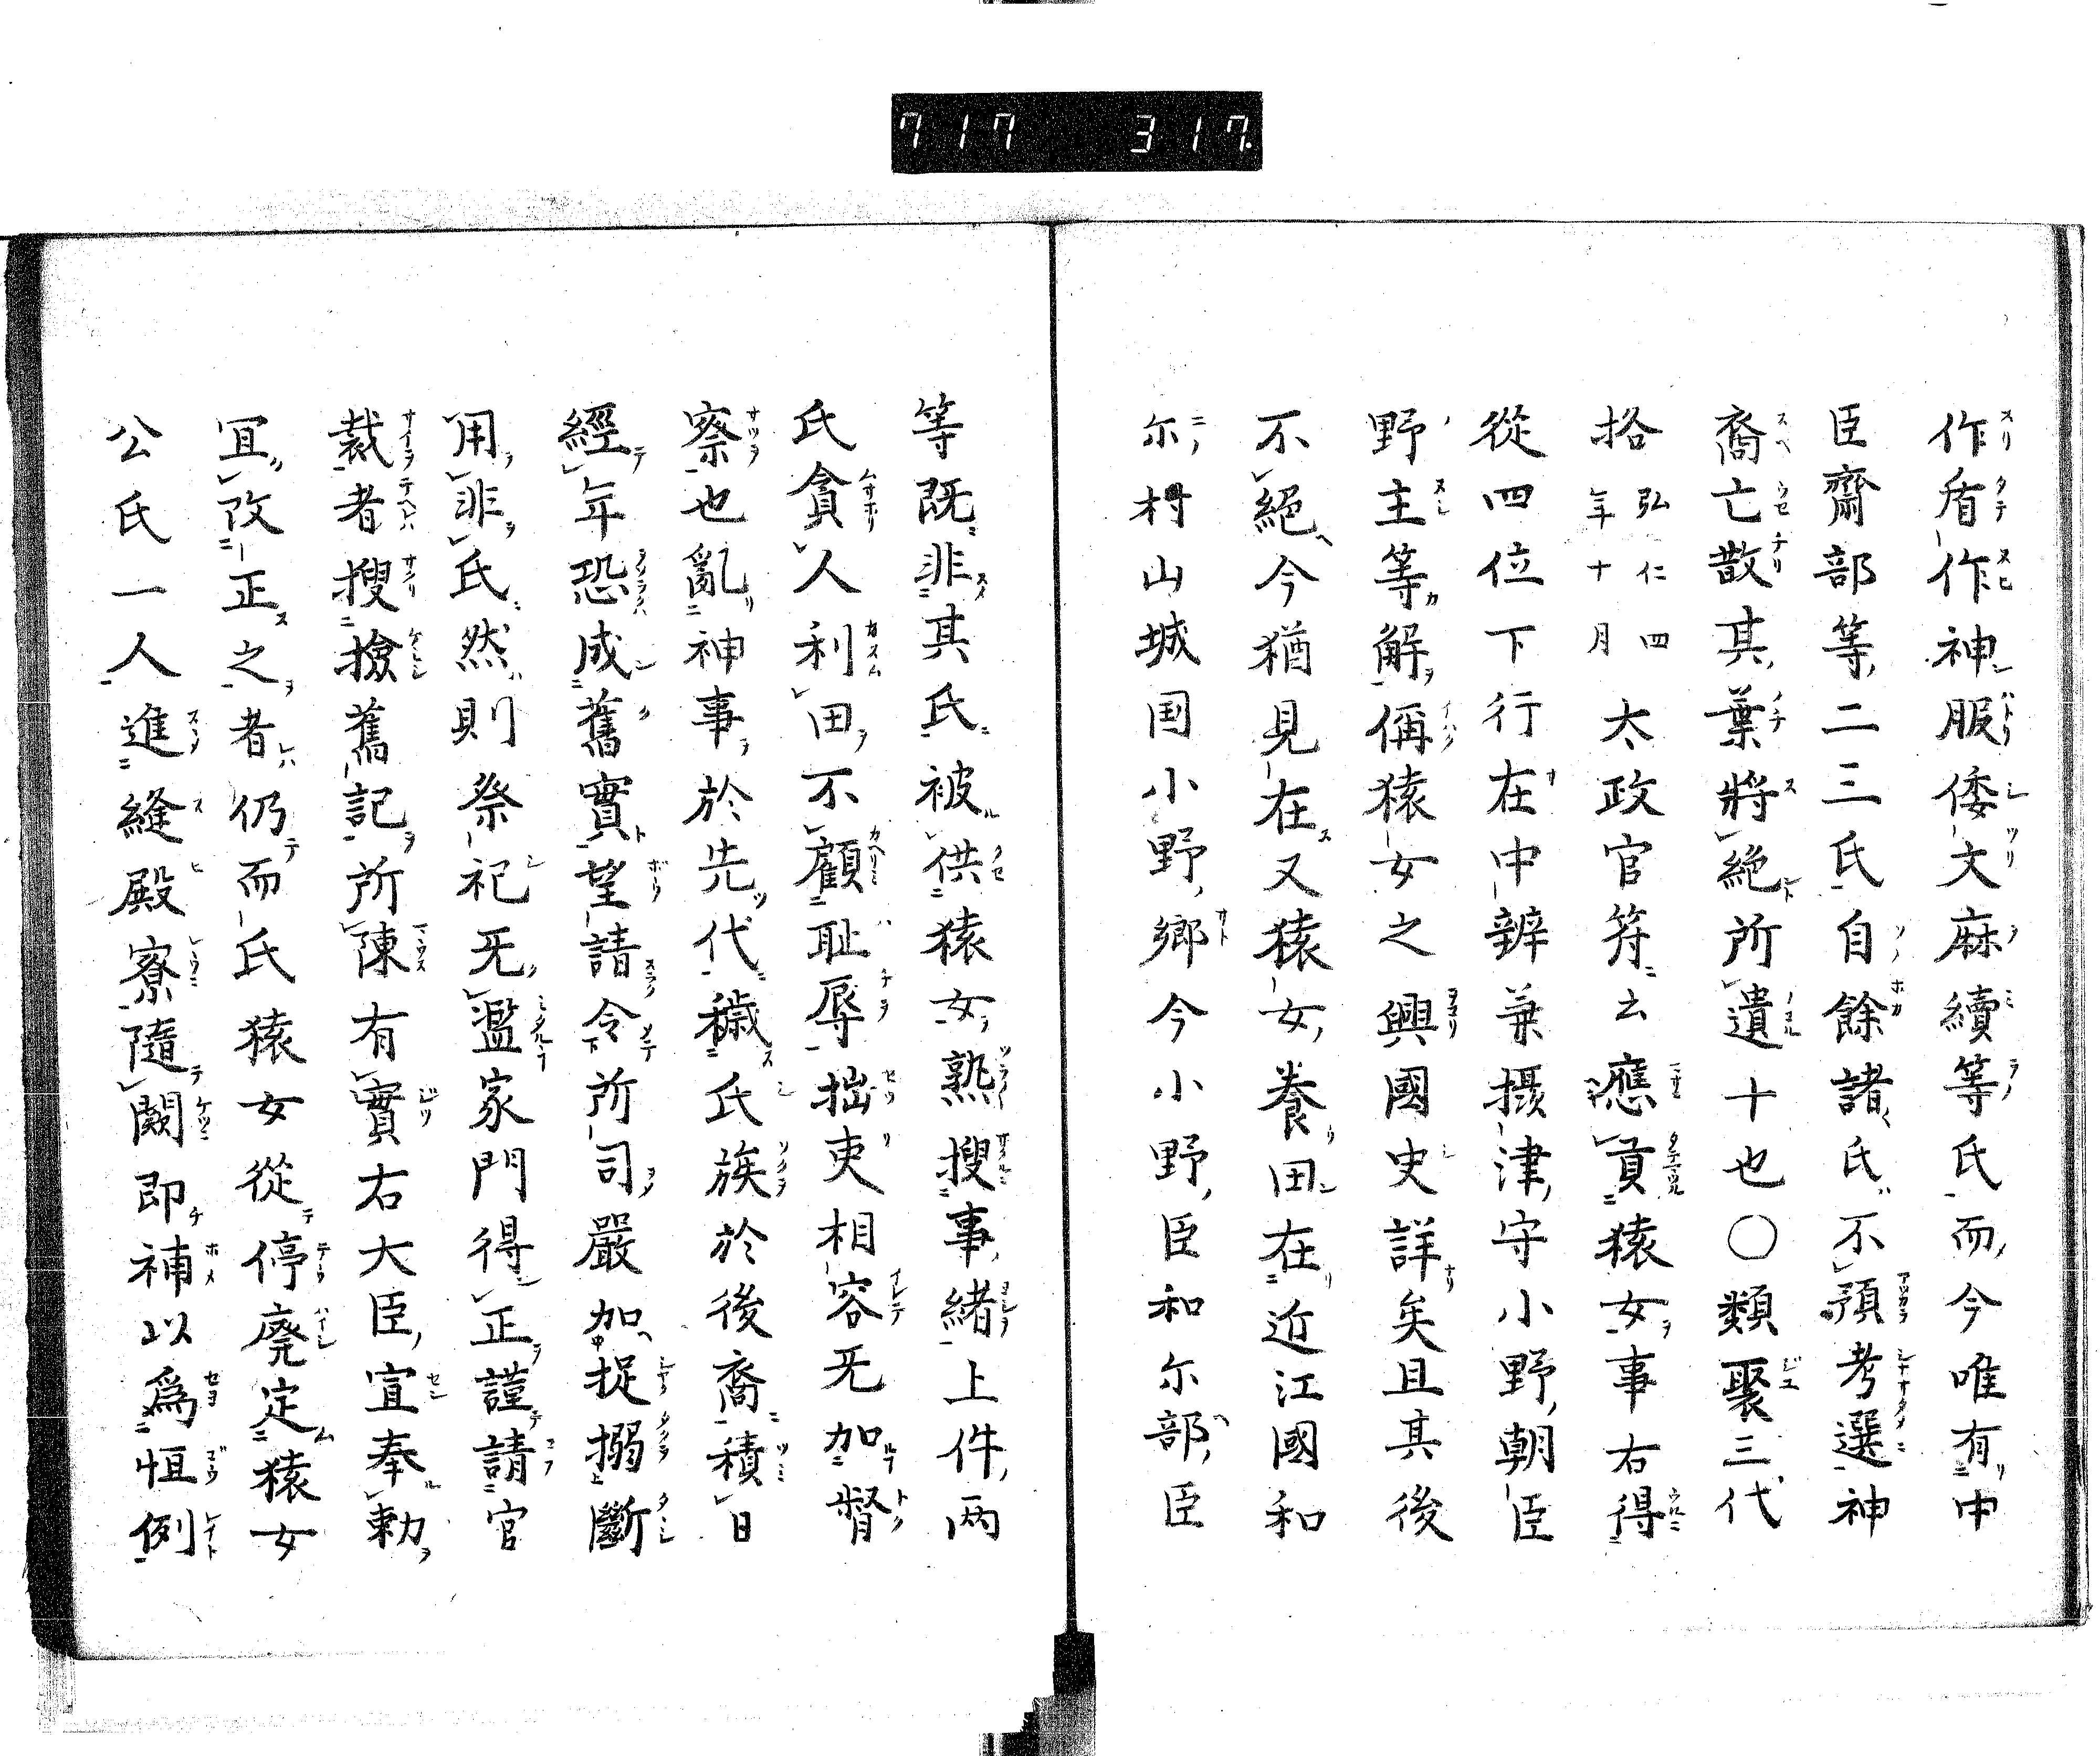 717 317.
作盾作神服倭文麻續等氏而今唯有中
臣齋部等二三氏自餘諸氏不預考選神
裔亡散其葉將絕所遺十也〇類聚三代
格弘仁四年十月太政官符云應貢猿女事右得
從四位下行在中辨兼摂津守小野朝臣
野主等解偁猿女之興國史詳矣且其後
不絕今猶見在又猿女養田在近江國和
尓村山城国小野鄉今小野臣和尓部臣
等既非其氏被供猿女熟搜事緒上件两
氏貪人利田不顧耻辱拙吏相容无加督
察也亂神事於先代穢氏族於後裔積日
經年恐成舊實望請令所司嚴加捉搦斷
用非氏然則祭祀无濫家門得正謹請官
裁者搜撿舊記所陳有實右大臣宣奉勅
宜改正之者仍而氏猿女從停廃定猿女
公氏一人進縫殿寮隨闕即補以爲恒例